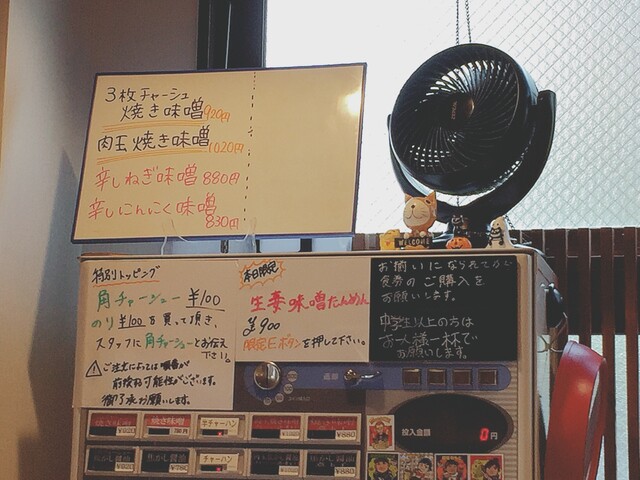 3枚チャーシュ
焼き味噌920円
肉玉焼き味噌
1020円
辛しねぎ味噌880円
辛しにんにく味噌
830円
WELCOME
特別トッピング
角チャーシュー ¥100
のり¥100を買って頂き、
スタッフに角チャーシューとお伝え
下さい。
ご注文によっては順番が
前後する可能性がございます。
御了承お願いします。
本日限定
生姜味噌たんめん
¥900
限定Eボタンを押して下さい。
お揃いになられてから
食券のご購入を
お願いします。
中学生以上の方は
お一人様一杯で
お願いします。
焼き味噌
半チャーハン
¥880
焦がし醤油
チャーハン
投入金額
0円